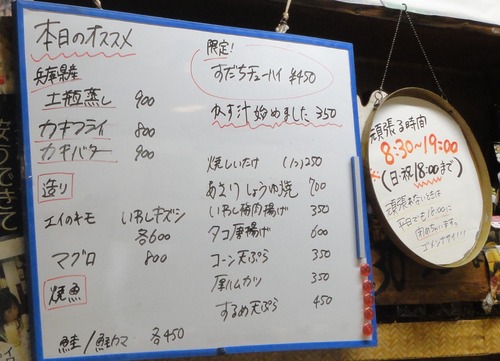 本日のオススメ
兵庫県産
土瓶蒸し 900
カキフライ 800
カキバター 900
造り
エイのキモ いわしキズシ
各600
マグロ 800
焼魚
鮭/鮭カマ 各450
限定!
すだちチューハイ ¥450
かす汁始めました 350
焼しいたけ (1コ)250
あさりしょうゆ焼 700
いわし梅肉揚げ 350
タコ唐揚げ 600
コーン天ぷら 350
厚ハムカツ 350
するめ天ぷら 450
頑張る時間
8:30~19:00
※(日・祝18:00まで)
頑張れないときは
平日でも18:00に
閉めちゃいます。
ゴメンナサイ!!